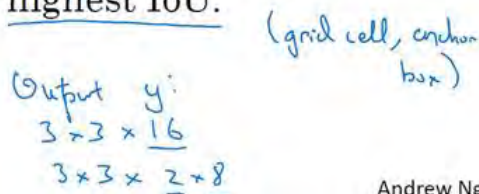 highest IoU.
(grid cell, anchor
box)
Output y:
3 × 3 × 16
3 × 3 × 2 × 8
Andrew Ng